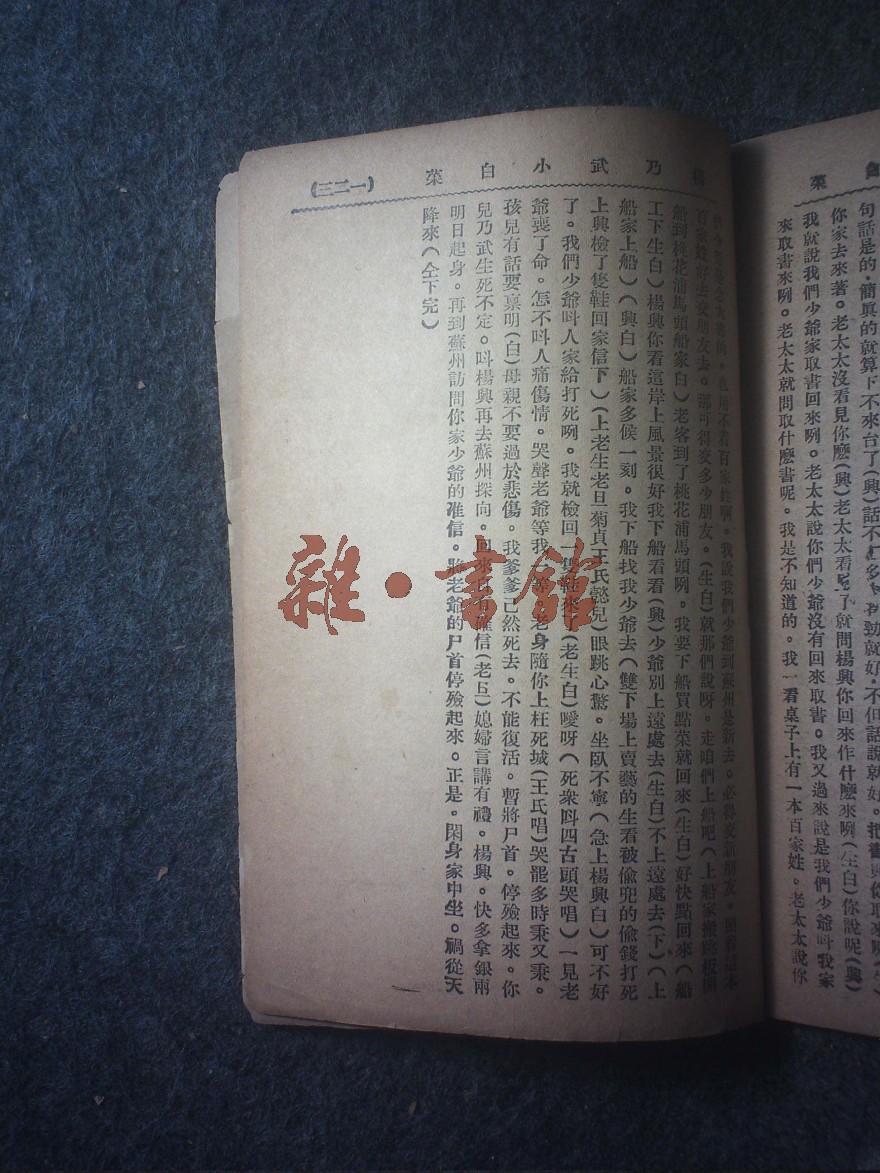 菜
句話是的．簡眞的就算下不來台了（興）話不
你家去來著。老太太沒看見你麽（興）老太太看見了就問楊興你回來作什麽來咧（生白）你說呢（興）
我就說我們少爺家取書回來咧。老太太說你們少爺沒有回來取書。我又過來說是我們少爺呌我家
來取書來咧。老太太就問取什麽書呢。我是不知道的。我一看桌子上有一本百家姓。老太太說你
楊乃武小白菜
（一二三）
用不着百家姓啊。我說我們少爺到蘇州是新去。必得交新朋友。
朋友去。都可得交多少朋友。（生白）就那們說呀。走咱們上船吧（上船家搬跳板開
船到桃花浦馬頭船家白）老客到了桃花浦馬頭咧。我要下船買點菜就回來（生白）好快點回來（船
工下生白）楊興你看這岸上風景很好我下船看看（興）少爺別上遠處去（生白）不上遠處去（下）（上
船家上船）（興白）船家多候一刻。我下船找我少爺去（雙下場上賣藝的生看被偷兜的偷錢打死
上興檢了隻鞋回家信下）（上老生老旦菊貞王氏懿兒）眼跳心驚。坐臥不寧（急上楊興白）可不好
了。我們少爺呌人家給打死咧。我就檢回一隻鞋來了（老生白）噯呀（死衆呌四古頭哭唱）一見老
爺喪了命。怎不呌人痛傷情。哭聲老爺等我一等。老身隨你上枉死城（王氏唱）哭罷多時秉又秉。
孩兒有話要稟明（白）母親不要過於悲傷。我爹爹已然死去。不能復活。暫將尸首。停殮起來。你
兒乃武生死不定。呌楊興再去蘇州探向。回來必有確信（老旦）媳婦言講有禮。楊興。快多拿銀兩
明日起身。再到蘇州訪問你家少爺的准信。將老爺的尸首停殮起來。正是。閑身家中坐。禍從天
降來（仝下完）
雜·書館